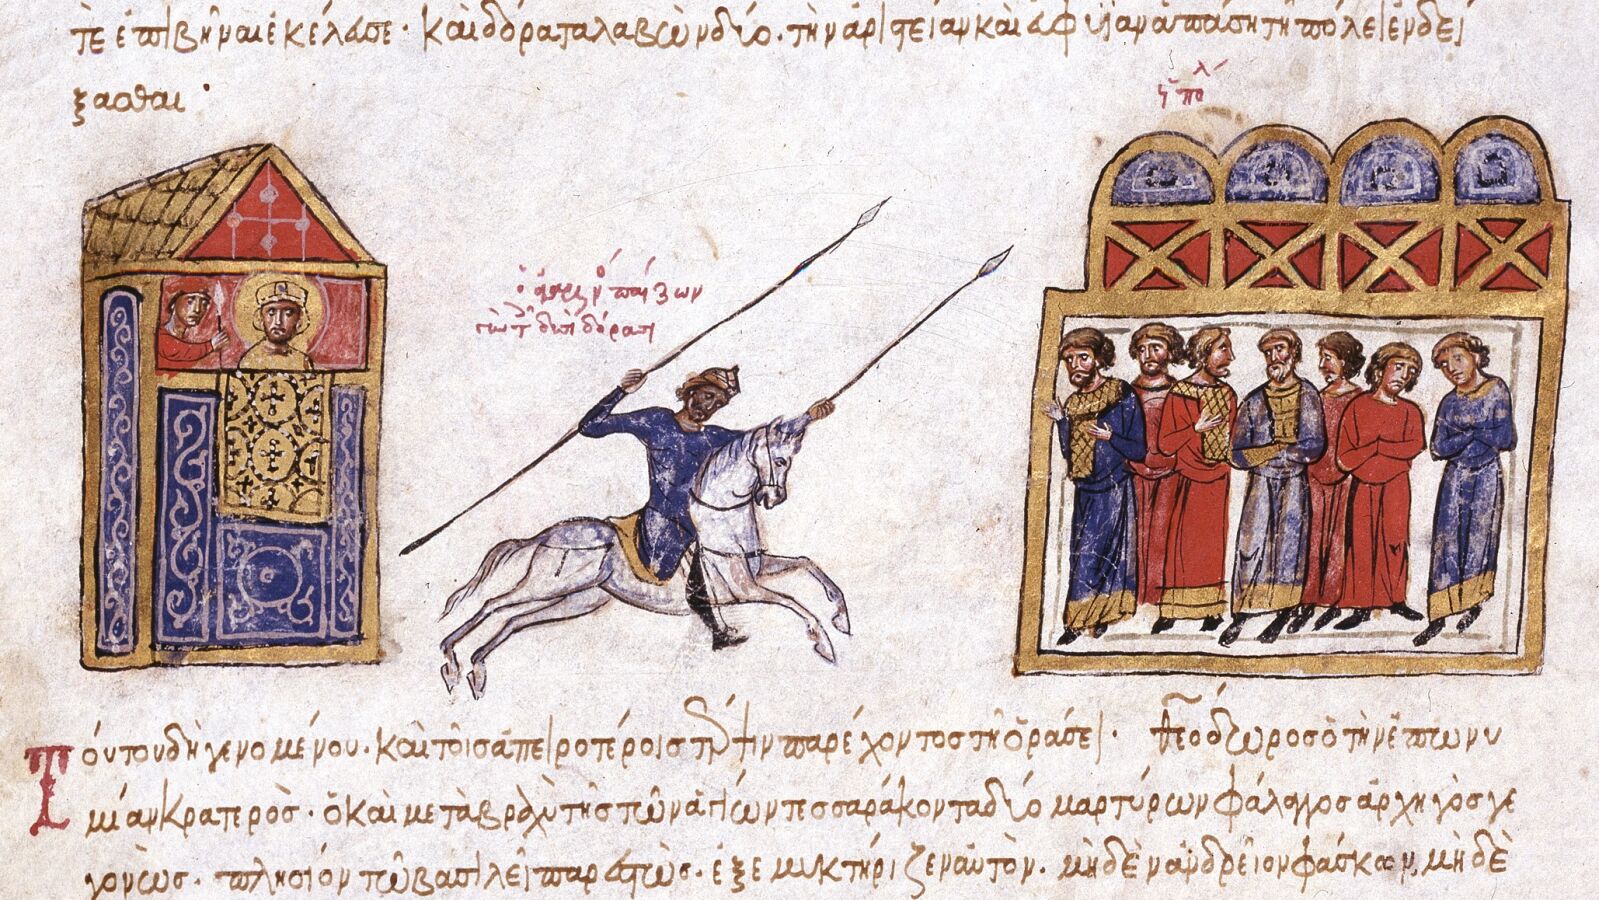 τε ἐπιβῆναι ἐκέλευσε· καὶ δόρατα λαβὼν δύο· τὴν ἀριστείαν καὶ εὐφυΐαν ἁπάσῃ τῇ πόλει ἐνδεί
ξασθαι·
ἡ πόλ
ὁ ἀγαρηνὸς παίζων
τοῖς δυσὶ δόρασι
Τούτου δὴ γενομένου· καὶ τοῖς ἀπειροτέροις τέρψιν παρέχοντος τῇ ὁράσει· Θεόδωρος ὁ τὴν ἐπωνυ
μίαν κρατερὸς· ὃ καὶ μετὰ βραχὺ τῆς τῶν ἁγίων τεσσαράκοντα δύο μαρτύρων φάλαγγος ἀρχηγὸς γε
γονὼς· πλησίον τῶ βασιλεῖ παρεστὼς· ἐξεμυκτήριζεν αὐτὸν· μηδὲν ἀνδρεῖον φάσκων, μηδὲ